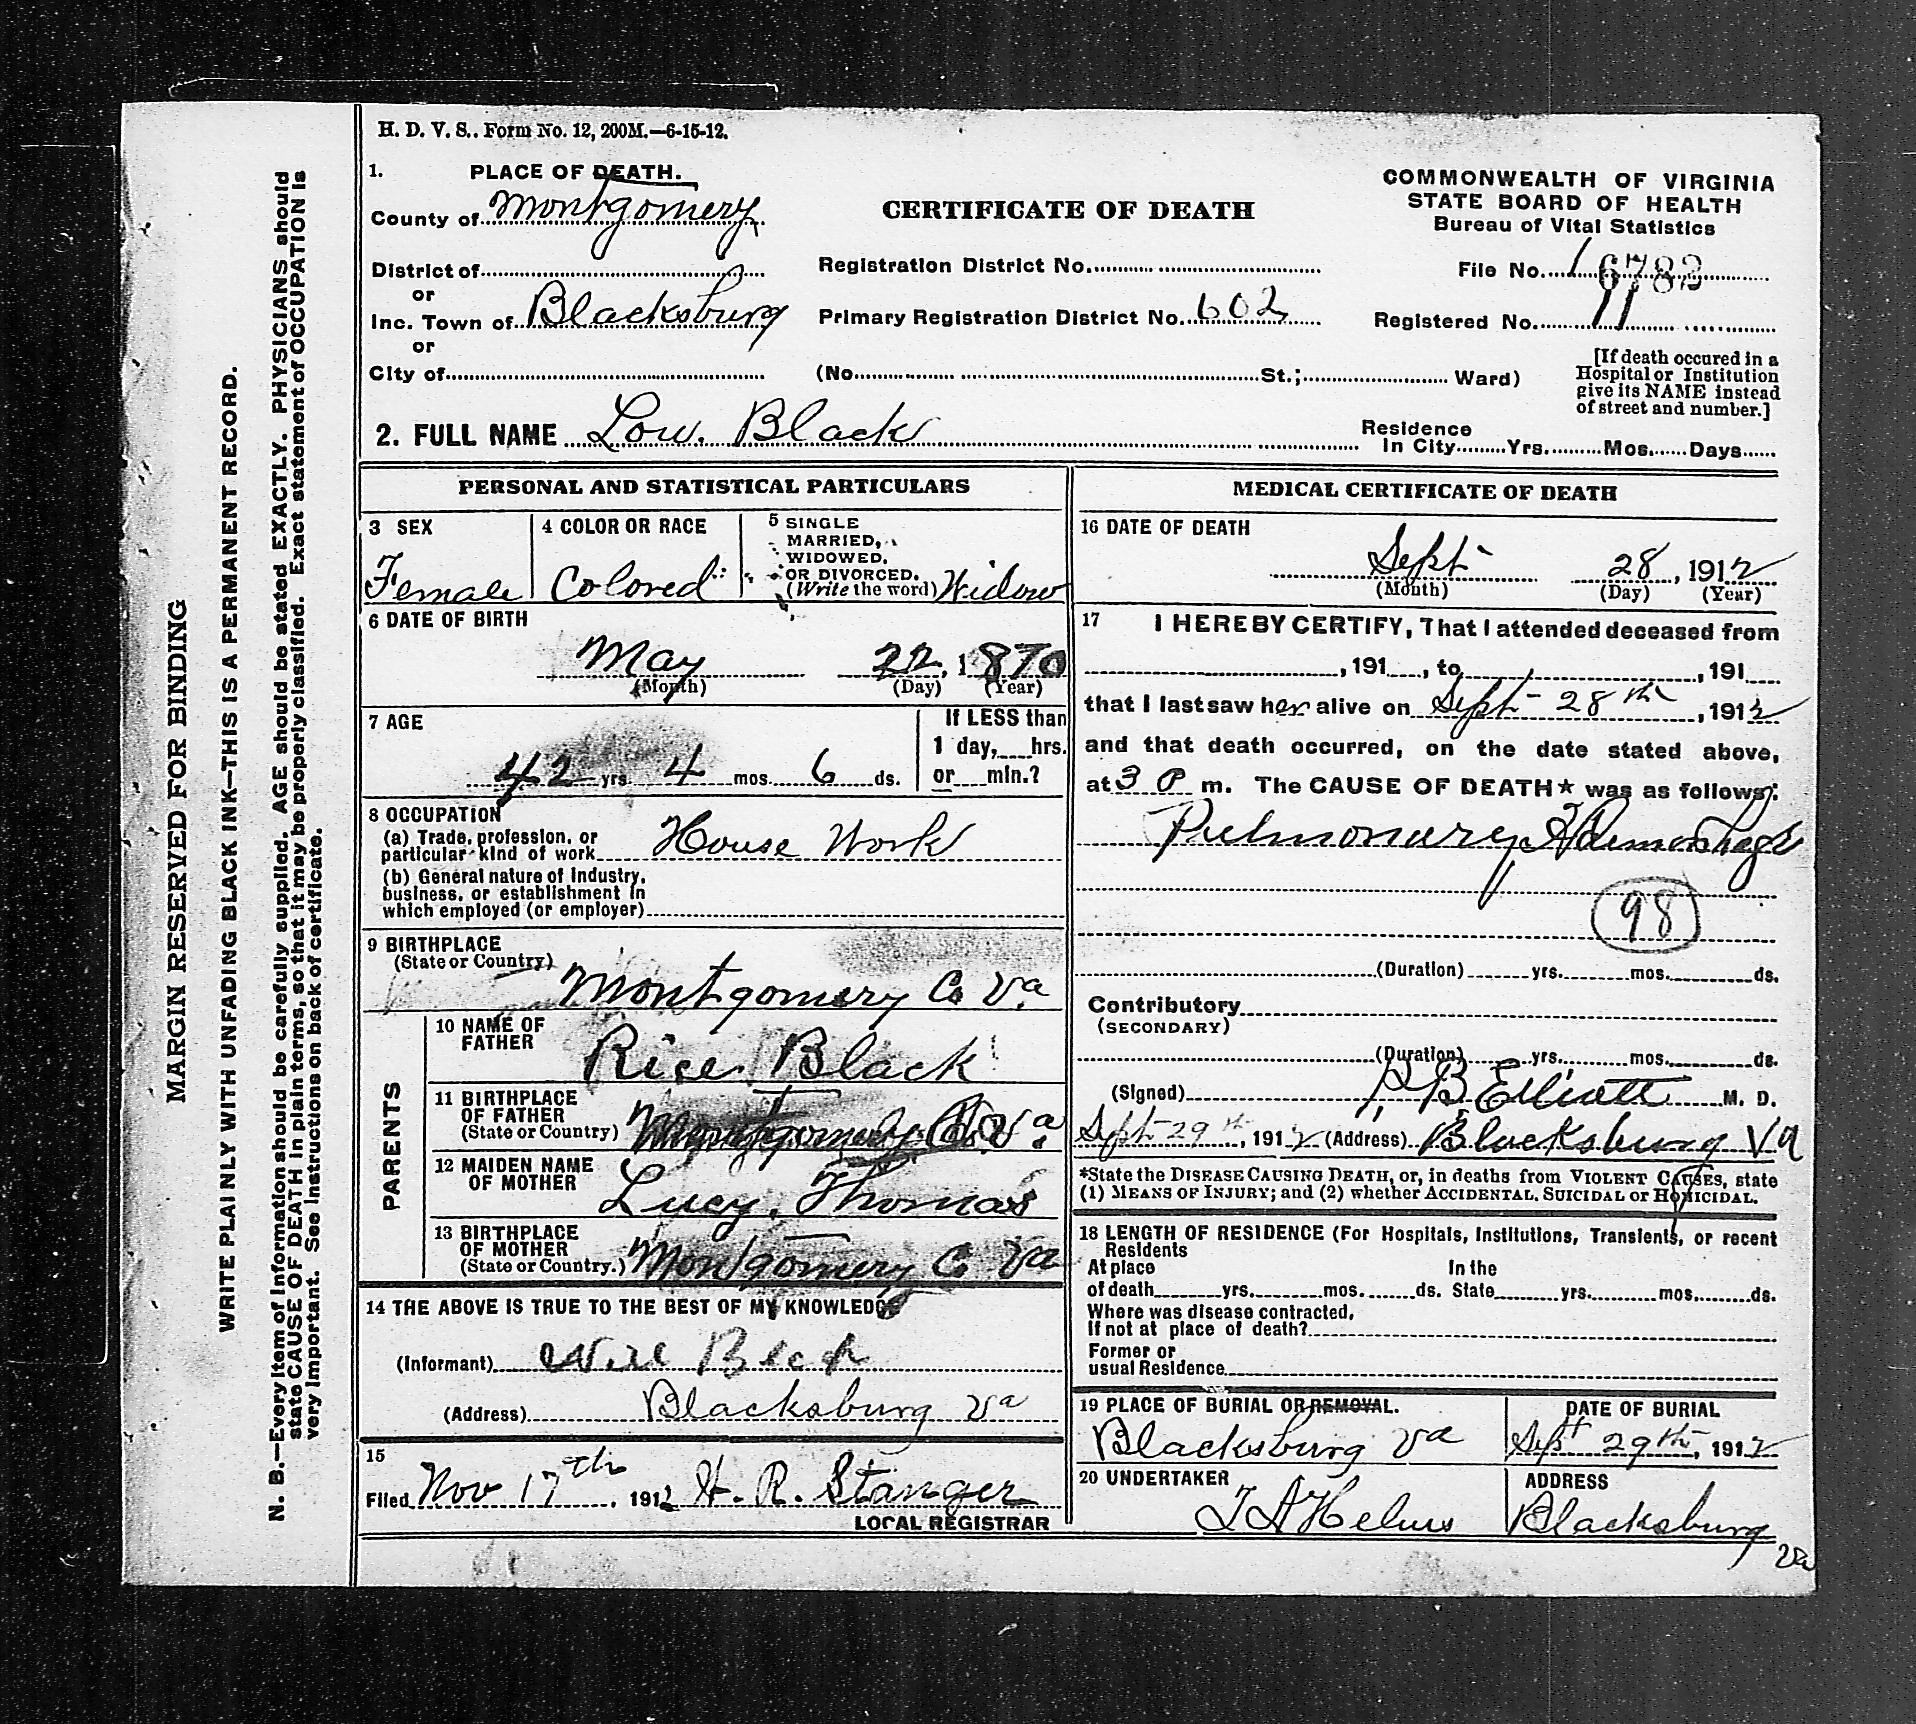 H. D. V. S.. Form No. 12, 200M.—6-15-12.
1. PLACE OF DEATH.
County of Montgomery
District of
or
Inc. Town of Blacksburg
or
City of
CERTIFICATE OF DEATH
Registration District No.
Primary Registration District No. 602
(No. St.; Ward)
COMMONWEALTH OF VIRGINIA
STATE BOARD OF HEALTH
Bureau of Vital Statistics
File No. 16782
Registered No. 11
[If death occured in a
Hospital or Institution
give its NAME instead
of street and number.]
2. FULL NAME Lou. Black
Residence
In City Yrs. Mos. Days
PERSONAL AND STATISTICAL PARTICULARS
3 SEX
Female
4 COLOR OR RACE
Colored
5 SINGLE
MARRIED,
WIDOWED,
OR DIVORCED.
(Write the word) Widow
6 DATE OF BIRTH
May 22, 1870
(Month) (Day) (Year)
7 AGE
42 yrs. 4 mos. 6 ds.
If LESS than
1 day, hrs.
or min.?
8 OCCUPATION
(a) Trade, profession, or
particular kind of work House Work
(b) General nature of Industry,
business, or establishment in
which employed (or employer)
9 BIRTHPLACE
(State or Country)
Montgomery Co Va
PARENTS
10 NAME OF
FATHER
Rice Black
11 BIRTHPLACE
OF FATHER
(State or Country) Montgomery Co Va.
12 MAIDEN NAME
OF MOTHER
Lucy. Thomas
13 BIRTHPLACE
OF MOTHER
(State or Country.) Montgomery Co Va
14 THE ABOVE IS TRUE TO THE BEST OF MY KNOWLEDGE
(Informant) Will Black
(Address) Blacksburg Va
15
Filed Nov 17th, 1912 H. R. Stanger
LOCAL REGISTRAR
MEDICAL CERTIFICATE OF DEATH
16 DATE OF DEATH
Sept 28, 1912
(Month) (Day) (Year)
17 I HEREBY CERTIFY, That I attended deceased from
, 191 , to , 191
that I last saw her alive on Sept 28th, 1912
and that death occurred, on the date stated above,
at 3 P m. The CAUSE OF DEATH* was as follows:
Pulmonary
98
(Duration) yrs. mos. ds.
Contributory
(SECONDARY)
(Duration) yrs. mos. ds.
(Signed) B Elliott M. D.
Sept 29th, 1912 (Address) Blacksburg Va
*State the DISEASE CAUSING DEATH, or, in deaths from VIOLENT CAUSES, state
(1) MEANS OF INJURY; and (2) whether ACCIDENTAL, SUICIDAL or HOMICIDAL.
18 LENGTH OF RESIDENCE (For Hospitals, Institutions, Transients, or recent
Residents
At place In the
of death yrs. mos. ds. State yrs. mos. ds.
Where was disease contracted,
If not at place of death?
Former or
usual Residence
19 PLACE OF BURIAL OR REMOVAL.
Blacksburg Va
DATE OF BURIAL
Sept 29th, 1912
20 UNDERTAKER
T A Helms
ADDRESS
Blacksburg
Va
MARGIN RESERVED FOR BINDING
WRITE PLAINLY WITH UNFADING BLACK INK—THIS IS A PERMANENT RECORD.
N. B.—Every item of Information should be carefully supplied. AGE should be stated EXACTLY. PHYSICIANS should
state CAUSE OF DEATH in plain terms, so that it may be properly classified. Exact statement of OCCUPATION is
very important. See instructions on back of certificate.